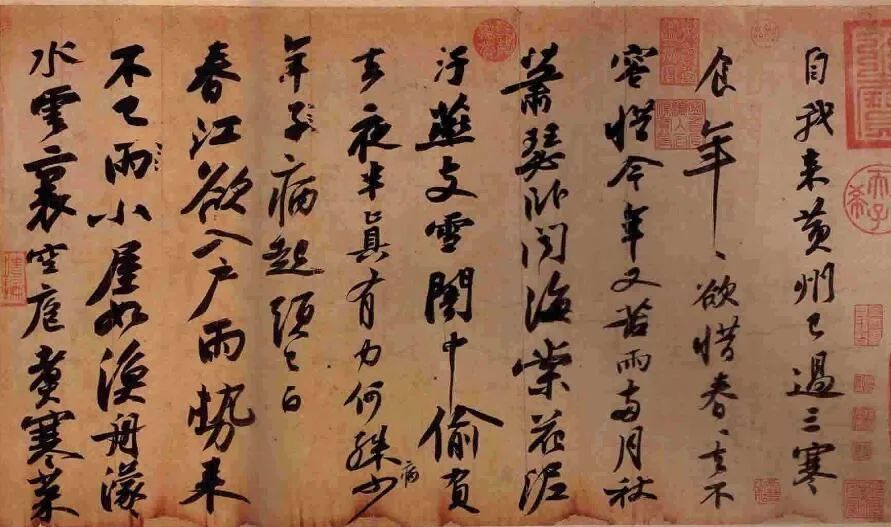 自我来黄州已過三寒
食年〻欲惜春〻去不
容惜今年又苦雨兩月秋
蕭瑟卧聞海棠花泥
汙燕支雪闇中偷負
去夜半真有力何殊少
病
年子病起須已白
春江欲入户雨勢来
不已雨小屋如漁舟濛〻
水雲裏空庖煑寒菜